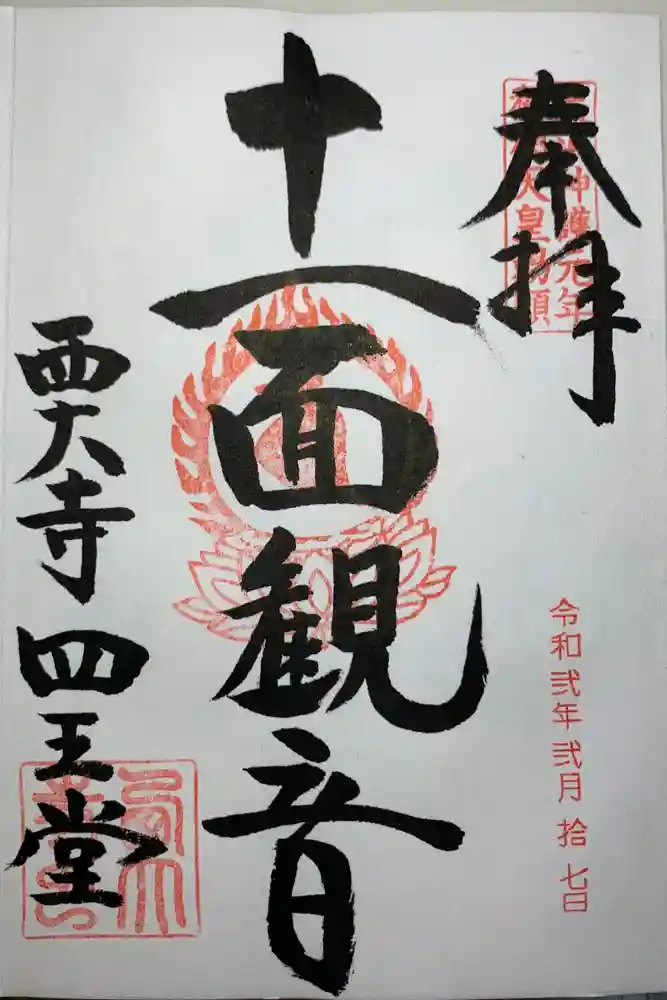 奉拝
神護元年
天皇勅願
令和弐年弐月拾七日
十一面観音
西大寺四王堂